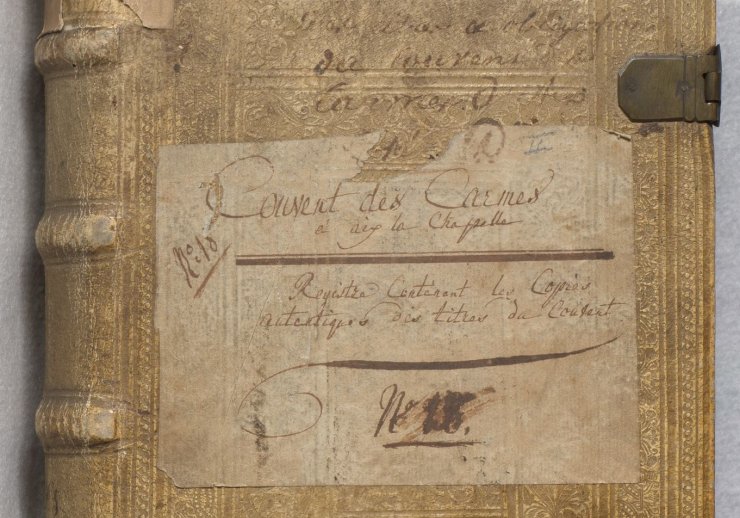 obligation
des Couvent
Carmes
II
Couvent des Carmes
a aix la Chapelle
No. 18
Registre Contenant les Copies
autentiques des titres du Couvent
No 18.